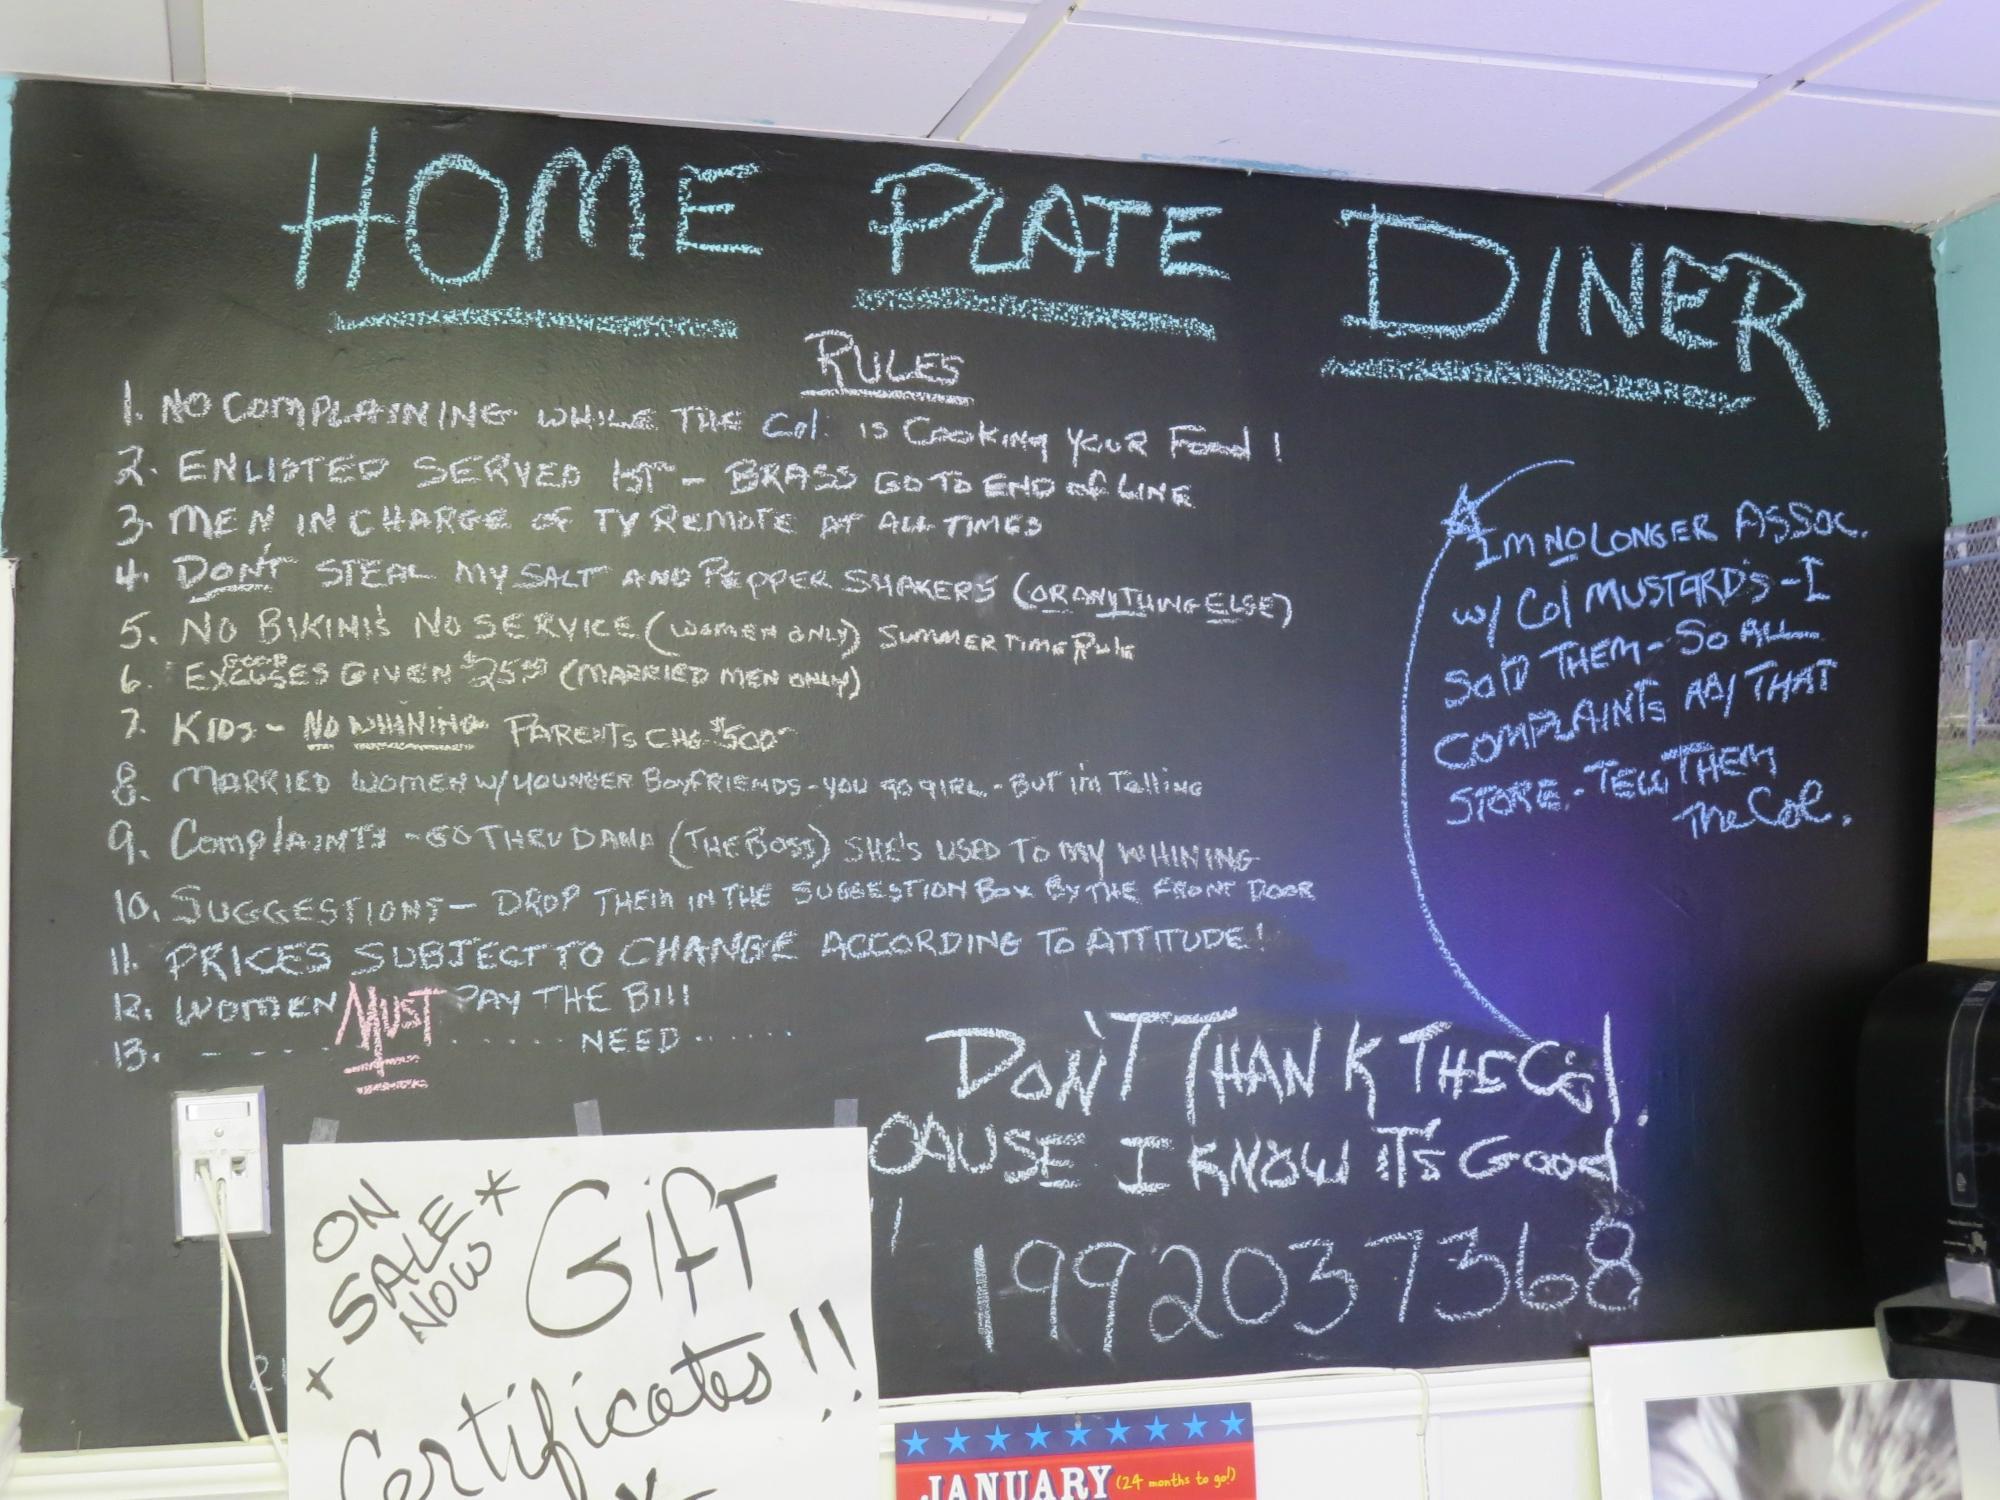 HOME PLATE DINER
RULES
1. NO COMPLAINING WHILE THE Col. is COOKING YOUR Food!
2. ENLISTED SERVED 1ST - BRASS GO TO END of LINE
3. MEN IN CHARGE OF TV REMOTE AT ALL TIMES
4. DON'T STEAL MY SALT AND PEPPER SHAKERS (OR ANYTHING ELSE)
5. NO BIKINI'S NO SERVICE (WOMEN ONLY) SUMMER TIME RULE
GOOD
6. EXCUSES GIVEN $25.00 (MARRIED MEN ONLY)
7. KIDS - NO WHINING PARENTS CHG $500
8. MARRIED WOMEN W/ YOUNGER BOYFRIENDS - YOU GO GIRL - BUT I'm Telling
9. Complaints - GO THRU DANA (THE BOSS) SHE'S USED TO MY WHINING
10. SUGGESTIONS - DROP THEM IN THE SUGGESTION BOX BY THE FRONT DOOR
11. PRICES SUBJECT TO CHANGE ACCORDING TO ATTITUDE!
12. WOMEN MUST PAY THE BILL
13. - - - - ...... NEED ......
I'M NO LONGER ASSOC.
W/ Col MUSTARD'S - I
SOLD THEM - SO ALL
COMPLAINTS AB/ THAT
STORE - TELL THEM
The Col.
DON'T THANK THE Col.
CAUSE I KNOW IT'S GOOD
1992037368
ON SALE NOW
Gift
Certificates!!
JANUARY (24 months to go!)